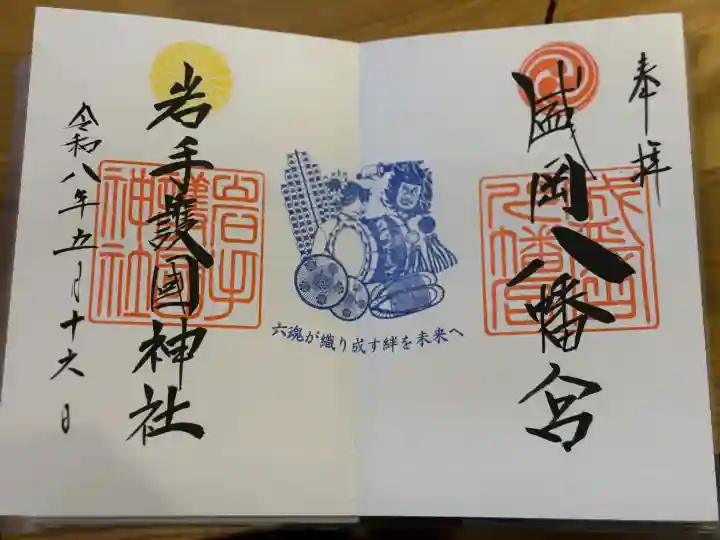 奉拝
盛岡八幡宮
盛岡八幡宮
六魂が織り成す絆を未来へ
岩手護國神社
岩手護國神社
令和八年五月十六日